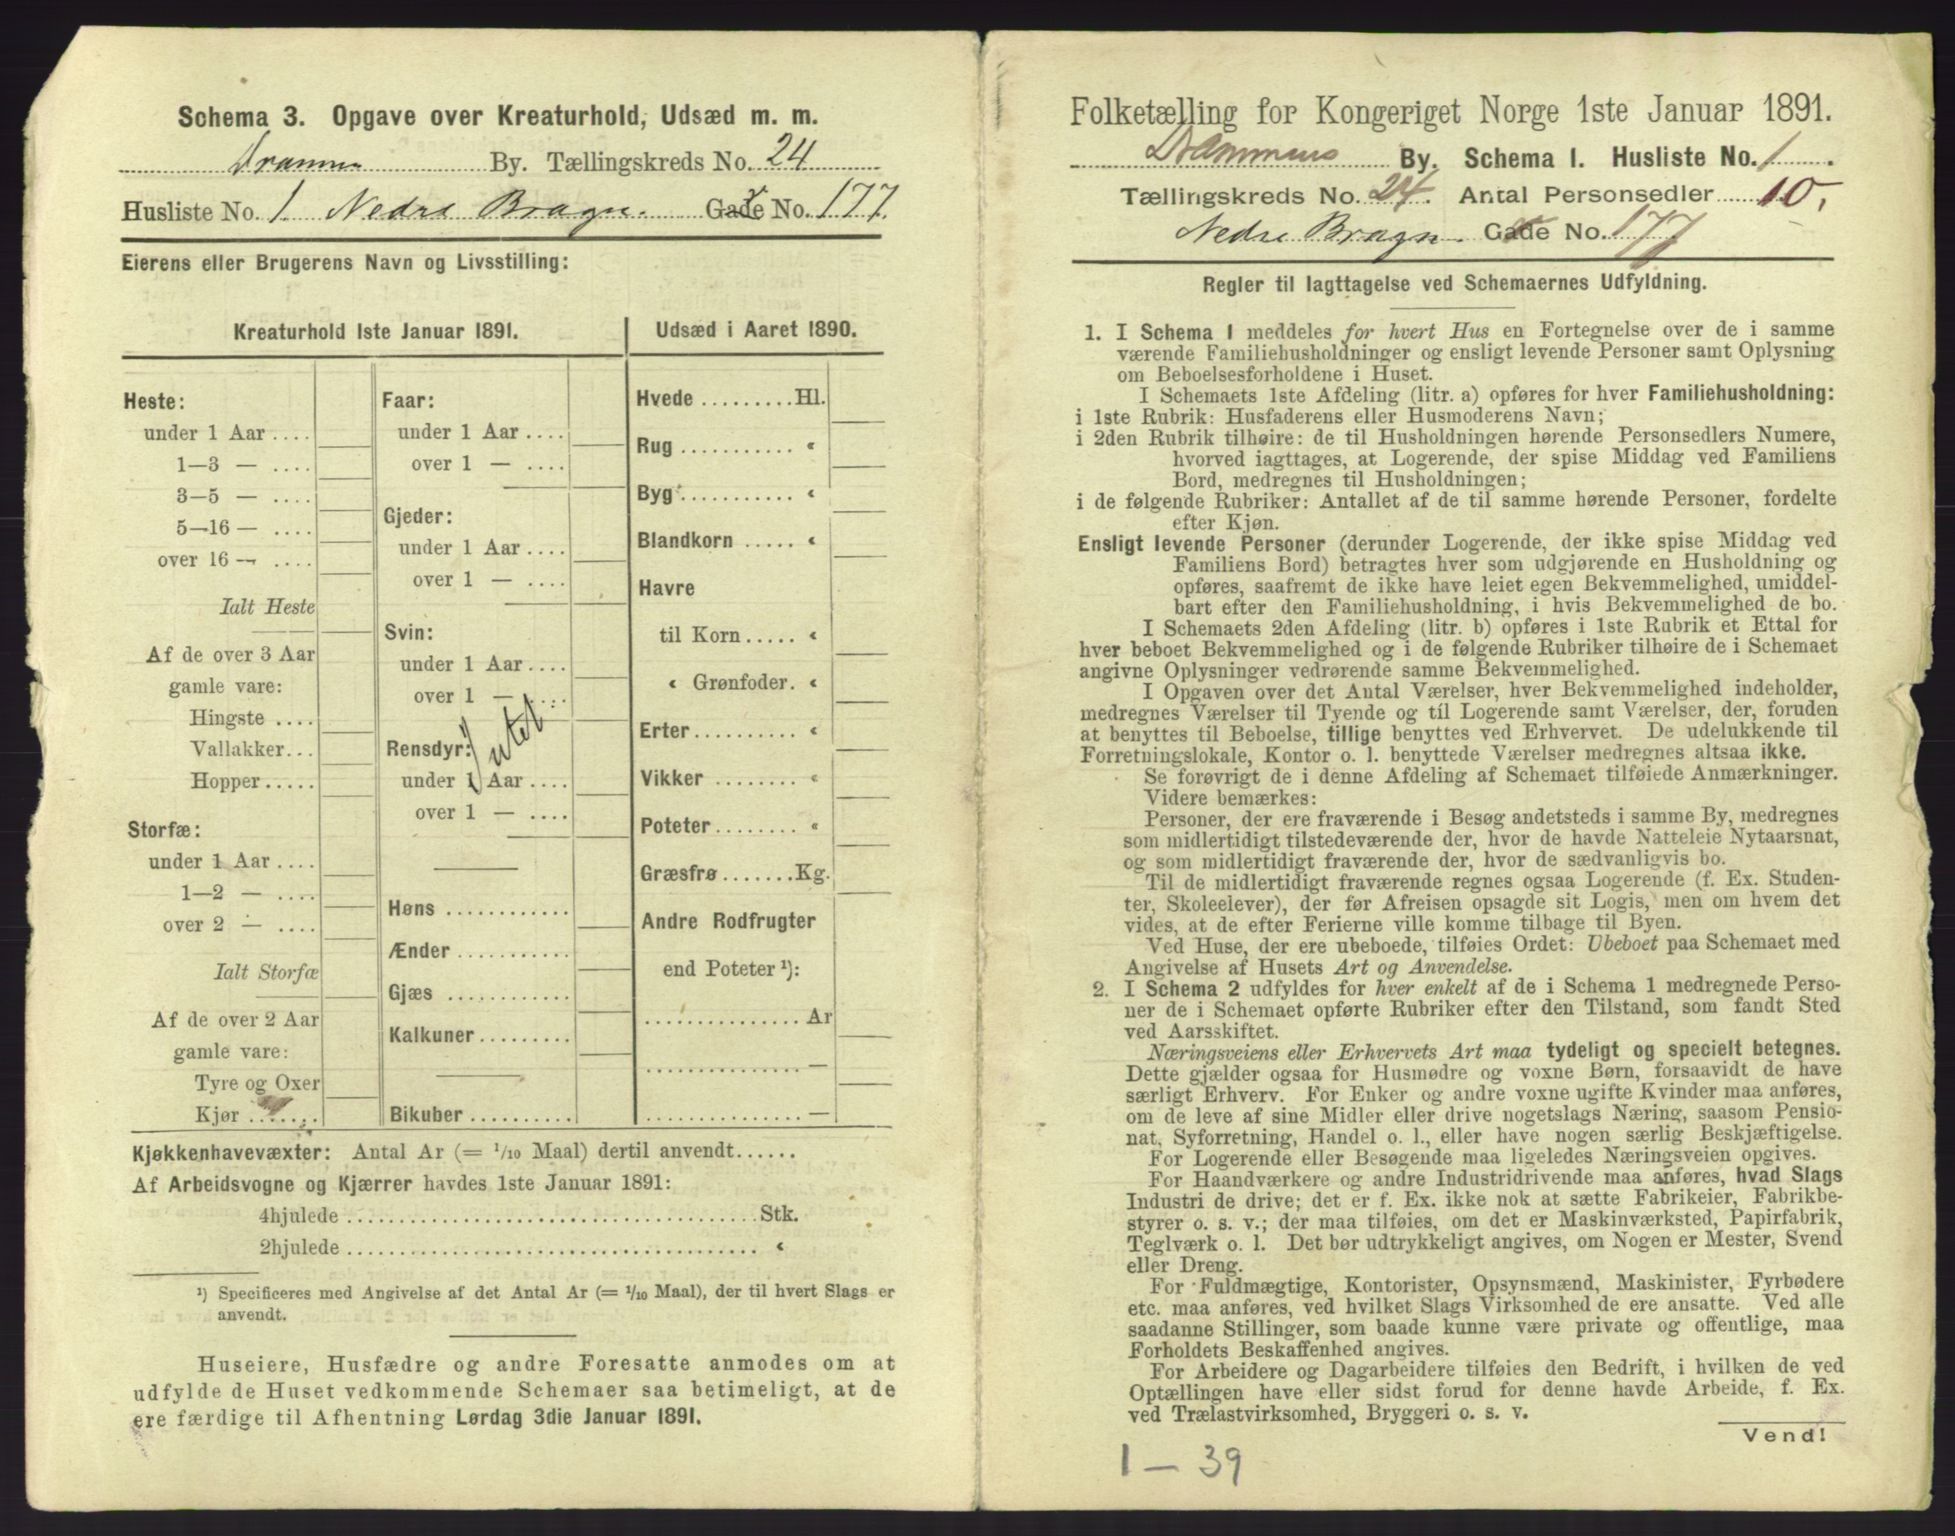 Schema 3. Opgave over Kreaturhold, Udsæd m. m.
Dramm By. Tællingskreds No. 24
Husliste No. 1 Nedre Bragn. Gade No. 177
Eierens eller Brugerens Navn og Livsstilling:
Kreaturhold 1ste Januar 1891.
Heste:
under 1 Aar ....
1—3 — ....
3—5 — ....
5—16 — ....
over 16 — ....
Ialt Heste
Af de over 3 Aar
gamle vare:
Hingste ....
Vallakker...
Hopper.....
Storfæ:
under 1 Aar ....
1—2 — ....
over 2 — ....
Ialt Storfæ
Af de over 2 Aar
gamle vare:
Tyre og Oxer
Kjør .......
Faar:
under 1 Aar ....
over 1 — ....
Gjeder:
under 1 Aar ....
over 1 — ....
Svin:
under 1 Aar ....
over 1 — ....
Intet
Rensdyr:
under 1 Aar ....
over 1 — ....
Høns ............
Ænder ...........
Gjæs ............
Kalkuner.........
Bikuber ..........
Udsæd i Aaret 1890.
Hvede .........Hl.
Rug ........... «
Byg........... «
Blandkorn ..... «
Havre
til Korn..... «
« Grønfoder. «
Erter.......... «
Vikker ........ «
Poteter........ «
Græsfrø .......Kg.
Andre Rodfrugter
end Poteter ¹):
............... Ar
............... —
............... —
Kjøkkenhavevæxter: Antal Ar (= 1/10 Maal) dertil anvendt......
Af Arbeidsvogne og Kjærrer havdes 1ste Januar 1891:
4hjulede ........................................ Stk.
2hjulede ........................................ «
¹) Specificeres med Angivelse af det Antal Ar (= 1/10 Maal), der til hvert Slags er
anvendt.
Huseiere, Husfædre og andre Foresatte anmodes om at
udfylde de Huset vedkommende Schemaer saa betimeligt, at de
ere færdige til Afhentning Lørdag 3die Januar 1891.
Folketælling for Kongeriget Norge 1ste Januar 1891.
Drammens By. Schema I. Husliste No. 1.
Tællingskreds No. 24. Antal Personsedler 10.
Nedre Bragn Gade No. 177
Regler til Iagttagelse ved Schemaernes Udfyldning.
1. I Schema 1 meddeles for hvert Hus en Fortegnelse over de i samme
værende Familiehusholdninger og ensligt levende Personer samt Oplysning
om Beboelsesforholdene i Huset.
I Schemaets 1ste Afdeling (litr. a) opføres for hver Familiehusholdning:
i 1ste Rubrik: Husfaderens eller Husmoderens Navn;
i 2den Rubrik tilhøire: de til Husholdningen hørende Personsedlers Numere,
hvorved iagttages, at Logerende, der spise Middag ved Familiens
Bord, medregnes til Husholdningen;
i de følgende Rubriker: Antallet af de til samme hørende Personer, fordelte
efter Kjøn.
Ensligt levende Personer (derunder Logerende, der ikke spise Middag ved
Familiens Bord) betragtes hver som udgjørende en Husholdning og
opføres, saafremt de ikke have leiet egen Bekvemmelighed, umiddel-
bart efter den Familiehusholdning, i hvis Bekvemmelighed de bo.
I Schemaets 2den Afdeling (litr. b) opføres i 1ste Rubrik et Ettal for
hver beboet Bekvemmelighed og i de følgende Rubriker tilhøire de i Schemaet
angivne Oplysninger vedrørende samme Bekvemmelighed.
I Opgaven over det Antal Værelser, hver Bekvemmelighed indeholder,
medregnes Værelser til Tyende og til Logerende samt Værelser, der, foruden
at benyttes til Beboelse, tillige benyttes ved Erhvervet. De udelukkende til
Forretningslokale, Kontor o. l. benyttede Værelser medregnes altsaa ikke.
Se forøvrigt de i denne Afdeling af Schemaet tilføiede Anmærkninger.
Videre bemærkes:
Personer, der ere fraværende i Besøg andetsteds i samme By, medregnes
som midlertidigt tilstedeværende der, hvor de havde Natteleie Nytaarsnat,
og som midlertidigt fraværende der, hvor de sædvanligvis bo.
Til de midlertidigt fraværende regnes ogsaa Logerende (f. Ex. Studen-
ter, Skoleelever), der før Afreisen opsagde sit Logis, men om hvem det
vides, at de efter Ferierne ville komme tilbage til Byen.
Ved Huse, der ere ubeboede, tilføies Ordet: Ubeboet paa Schemaet med
Angivelse af Husets Art og Anvendelse.
2. I Schema 2 udfyldes for hver enkelt af de i Schema 1 medregnede Perso-
ner de i Schemaet opførte Rubriker efter den Tilstand, som fandt Sted
ved Aarsskiftet.
Næringsveiens eller Erhvervets Art maa tydeligt og specielt betegnes.
Dette gjælder ogsaa for Husmødre og voxne Børn, forsaavidt de have
særligt Erhverv. For Enker og andre voxne ugifte Kvinder maa anføres,
om de leve af sine Midler eller drive nogetslags Næring, saasom Pensio-
nat, Syforretning, Handel o. l., eller have nogen særlig Beskjæftigelse.
For Logerende eller Besøgende maa ligeledes Næringsveien opgives.
For Haandværkere og andre Industridrivende maa anføres, hvad Slags
Industri de drive; det er f. Ex. ikke nok at sætte Fabrikeier, Fabrikbe-
styrer o. s. v.; der maa tilføies, om det er Maskinværksted, Papirfabrik,
Teglværk o. l. Det bør udtrykkeligt angives, om Nogen er Mester, Svend
eller Dreng.
For Fuldmægtige, Kontorister, Opsynsmænd, Maskinister, Fyrbødere
etc. maa anføres, ved hvilket Slags Virksomhed de ere ansatte. Ved alle
saadanne Stillinger, som baade kunne være private og offentlige, maa
Forholdets Beskaffenhed angives.
For Arbeidere og Dagarbeidere tilføies den Bedrift, i hvilken de ved
Optællingen have eller sidst forud for denne havde Arbeide, f. Ex.
ved Trælastvirksomhed, Bryggeri o. s. v.
Vend!
1 — 39